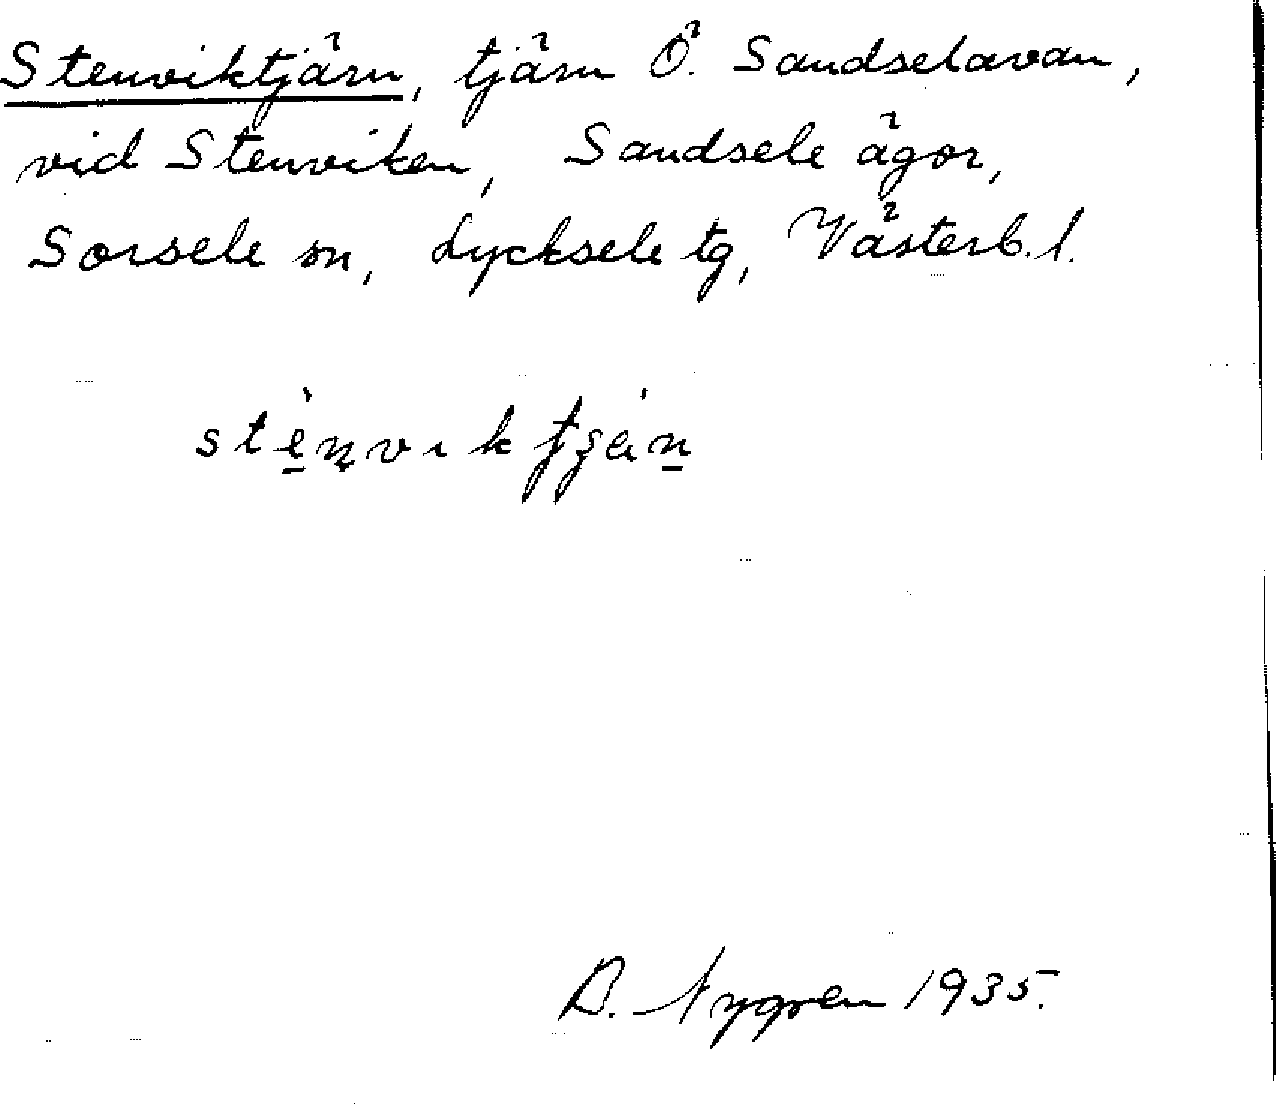 Stenviktjärn, tjärn Ö. Sandselavan,
vid Stenviken, Sandsele ägor,
Sorsele sn, Lycksele tg, Västerb. l.
Nygren 1935.